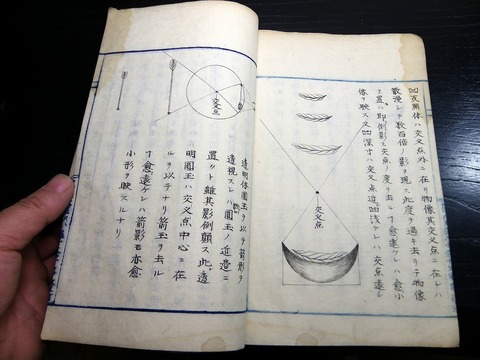 凹反照体ハ交叉点外ニ在リ物像其交叉点ニ在レハ
散漫シテ数百倍ノ影ヲ現ス此度ヲ過キ去リテ物像
ヲ置ハ即倒影ス交叉点ノ度ヲ去ルヿ愈遠ケレハ愈小
像ヲ映ス又凹深キハ交叉点近凹浅ケレハ交叉点遠シ
交叉点
交叉点
透明体圓玉ヲ以テ箭形ヲ
透視スレハ圓玉ノ近邉ニ
置クト雖其影倒顛ス此透
明圓玉ハ交叉点中心ニ在
ルヲ以テナリ箭玉ヲ去ル
ヿ愈遠ケレハ箭影モ亦愈
小形ヲ映スルナリ